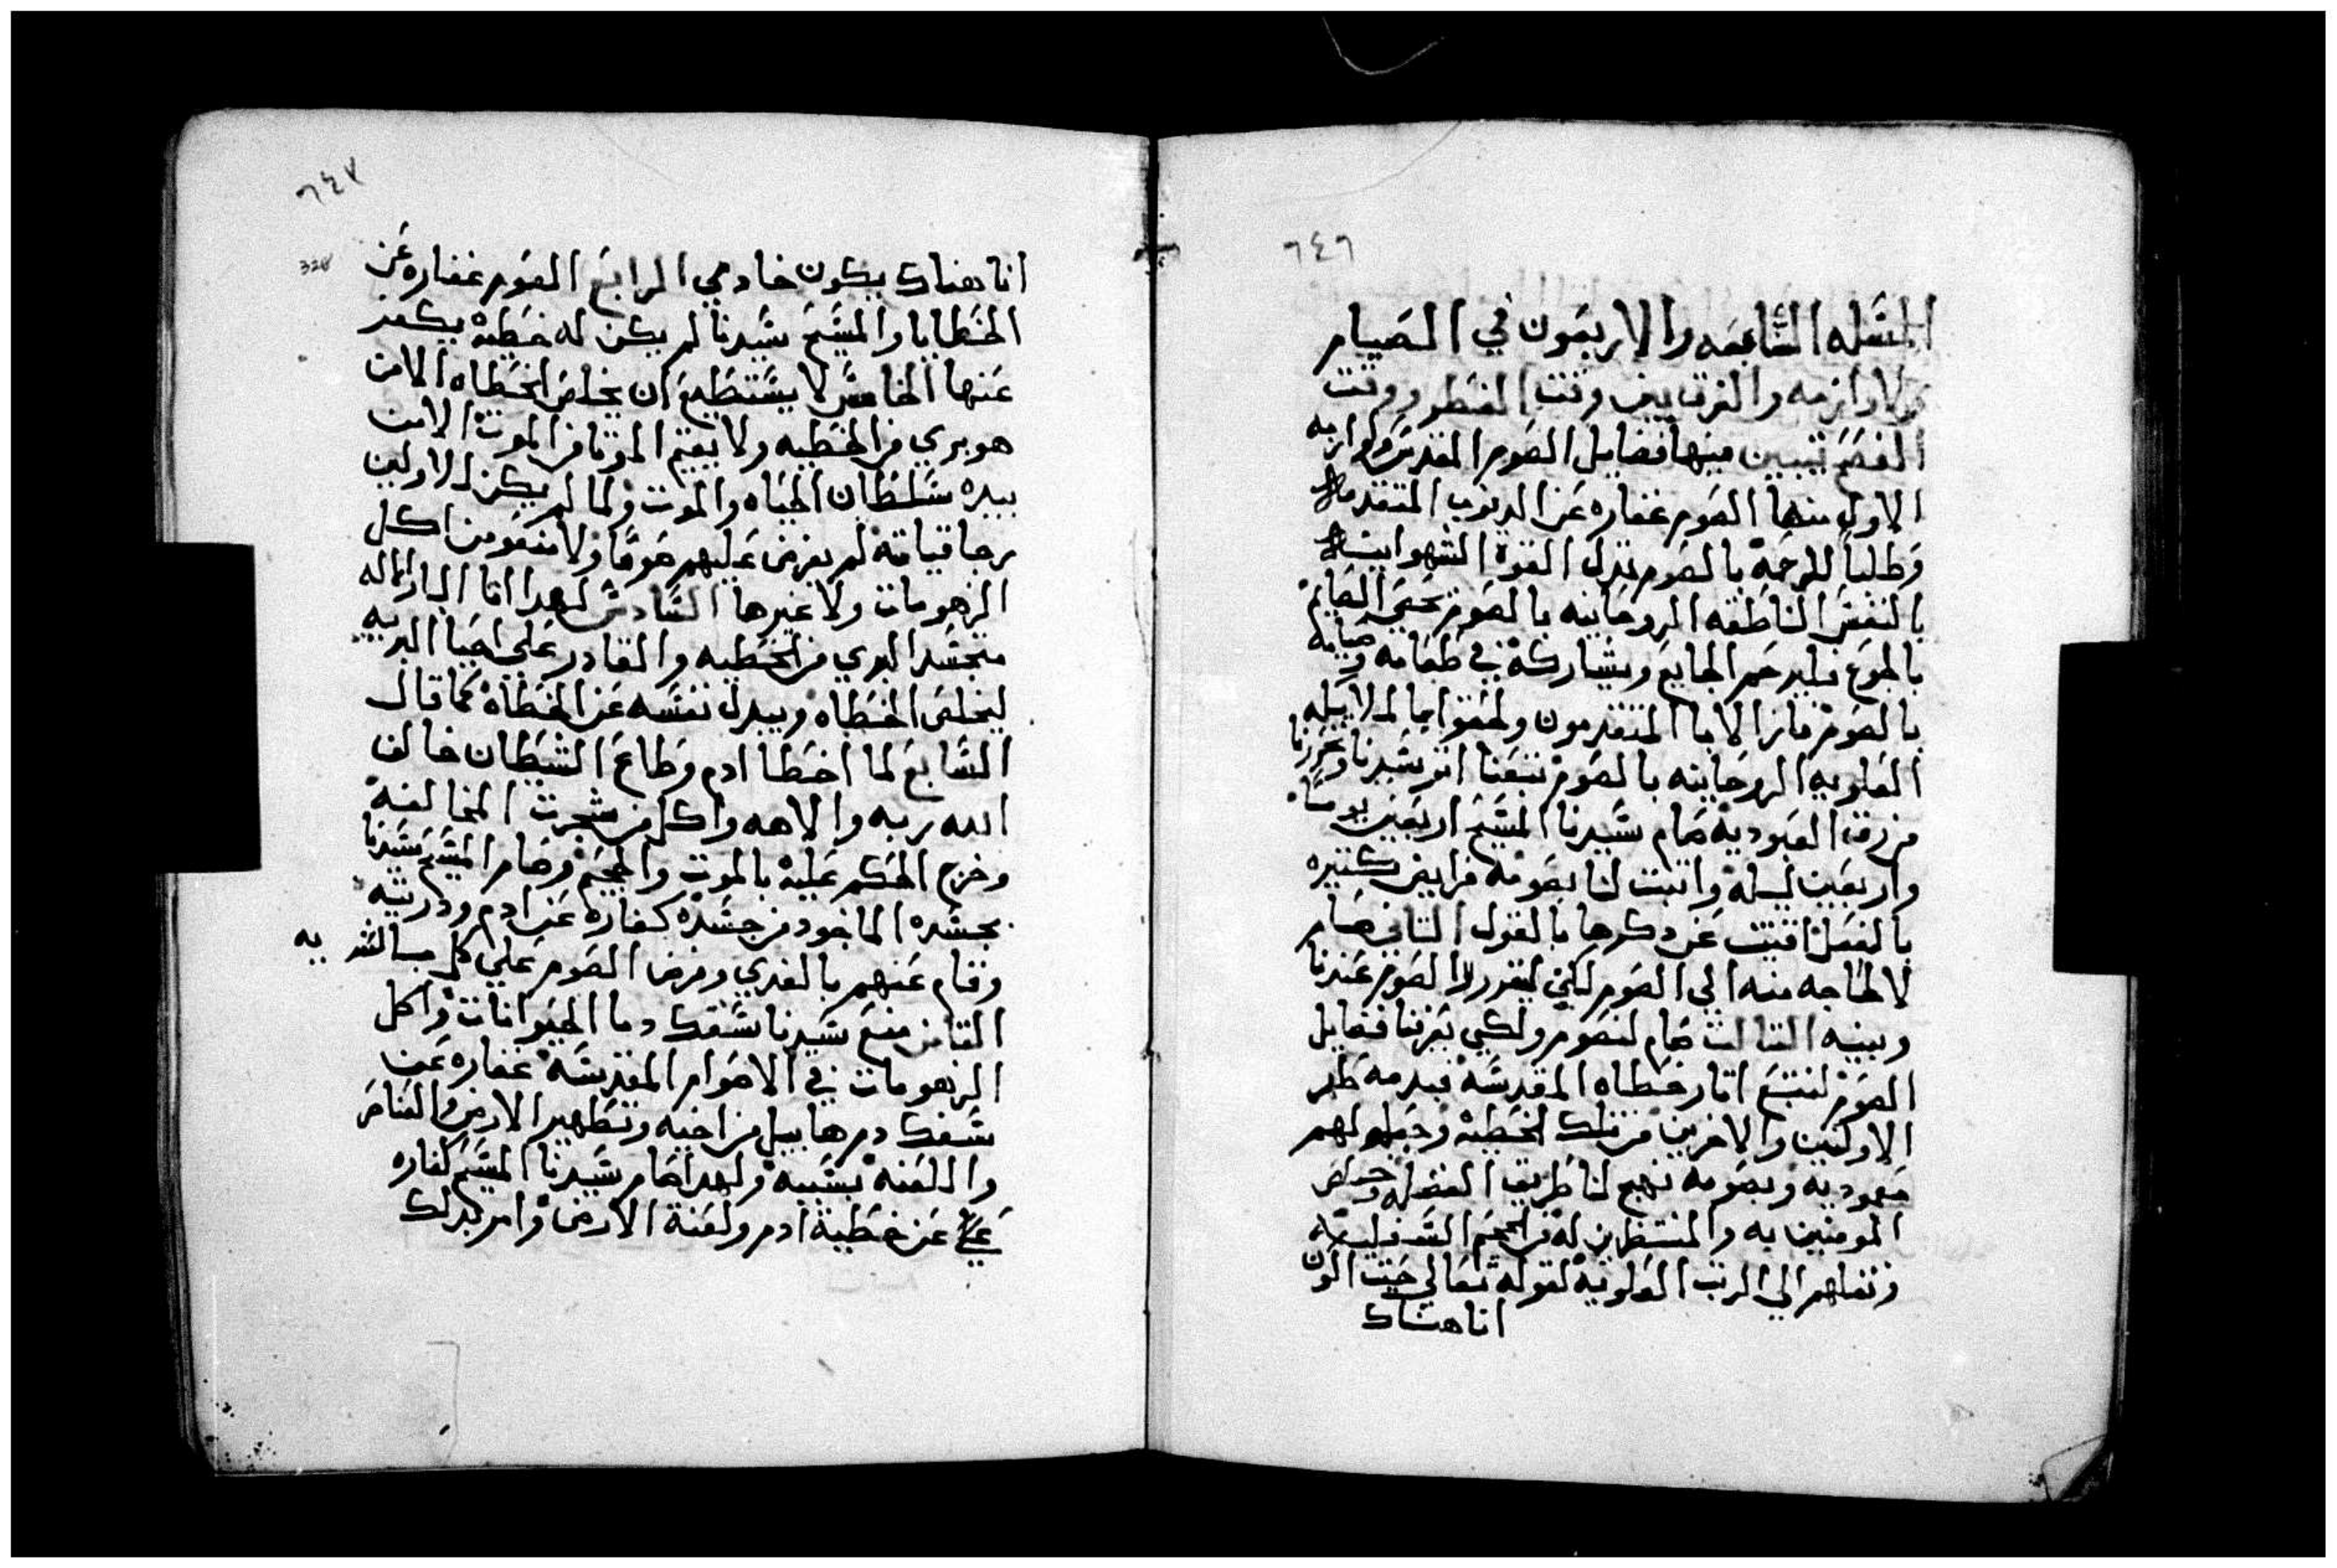 ٦٤٦
المسله التاسعه والاربعون في الصيام
ولاوازمه والفرق بين وقت الفطر ووقت
الفصح تتبين فيها فضايل الصوم المقدس ولوازمه
الاول منها الصوم غفاره عن الدنوب المتقدمه
وطلبا للرحمة بالصوم تبدل القوة الشهوانيه
بالنفس الناطقه الروحانيه بالصوم يحس الصايم
بالجوع فليرحم الجايع ويشاركة في طعامه
بالصوم فازا الابا المتقدمون ولحقوا بما
العلويه الروحانيه بالصوم نتبعنا اثر سيدنا
من رق العبودية صام سيدنا المسيح اربعين يوماً
واربعين ليلة واتبت لنا بصومة فرايض كتيره
بالفعل اغنت عن دكرها بالقول التاني صام
لا لحاجه منه الي الصوم لكن ليقرر لنا الصوم عندنا
وبينه التالت صام لنصوم ولكي يعرفنا فضايل
الصوم لنتبع اتار خطاه المقدسة فبدمه طهر
الاولين والاخرين من تلك الخطية وجعله لهم
معموديه وبصومه نهج لنا طريق الفضله وخلص
المومنين به والمنتظرين له من الجحيم السفليه
ونقلهم الي الرتب العلوية لقوله تعالي حيت اكون
انا هناك
٦٤٧
328
انا هناك يكون خادمي الرابع الصوم غفاره عن
الخطايا والمسيح سيدنا لم يكن له خطية يكفر
عنها الخامس لا يستطيع ان يخلص الخطاه الا من
هو بري من الخطيه ولا يقيم الموتا من الموت الا من
بيده سلطان الحياه والموت ولما لم يكن للاولين
رجا قيامة لم يفرض عليهم صوماً ولا منعو من اكل
الزهومات ولا غيرها السادس لهدا اتا الباري الاله
متجسدا البري من الخطيه والقادر علي احيا البريه
ليخلص الخطاه ويبدل نفسه عن الخطاة كما قال
السابع لما اخطا ادم وطاع الشيطان خالف
الله ربه والاهه واكل من شجرت المخالفة
وخرج الحكم علية بالموت والجحيم وصام المسيح سيدنا
بجسده الماخود من جسدة كفاره عن ادم ودريته
وقام عنهم بالفدي وفرض الصوم علي كل سالله به
التامن منع سيدنا سفك دما الحيوانات واكل
الزهومات في الاصوام المقدسة غفاره عن
سفك دم هابيل من اخيه وتطهير الارض والعناصر
واللعنة بسببه ولهدا صام سيدنا المسيح كفاره
عن خطية ادم ولعنة الارض وامر بدلك